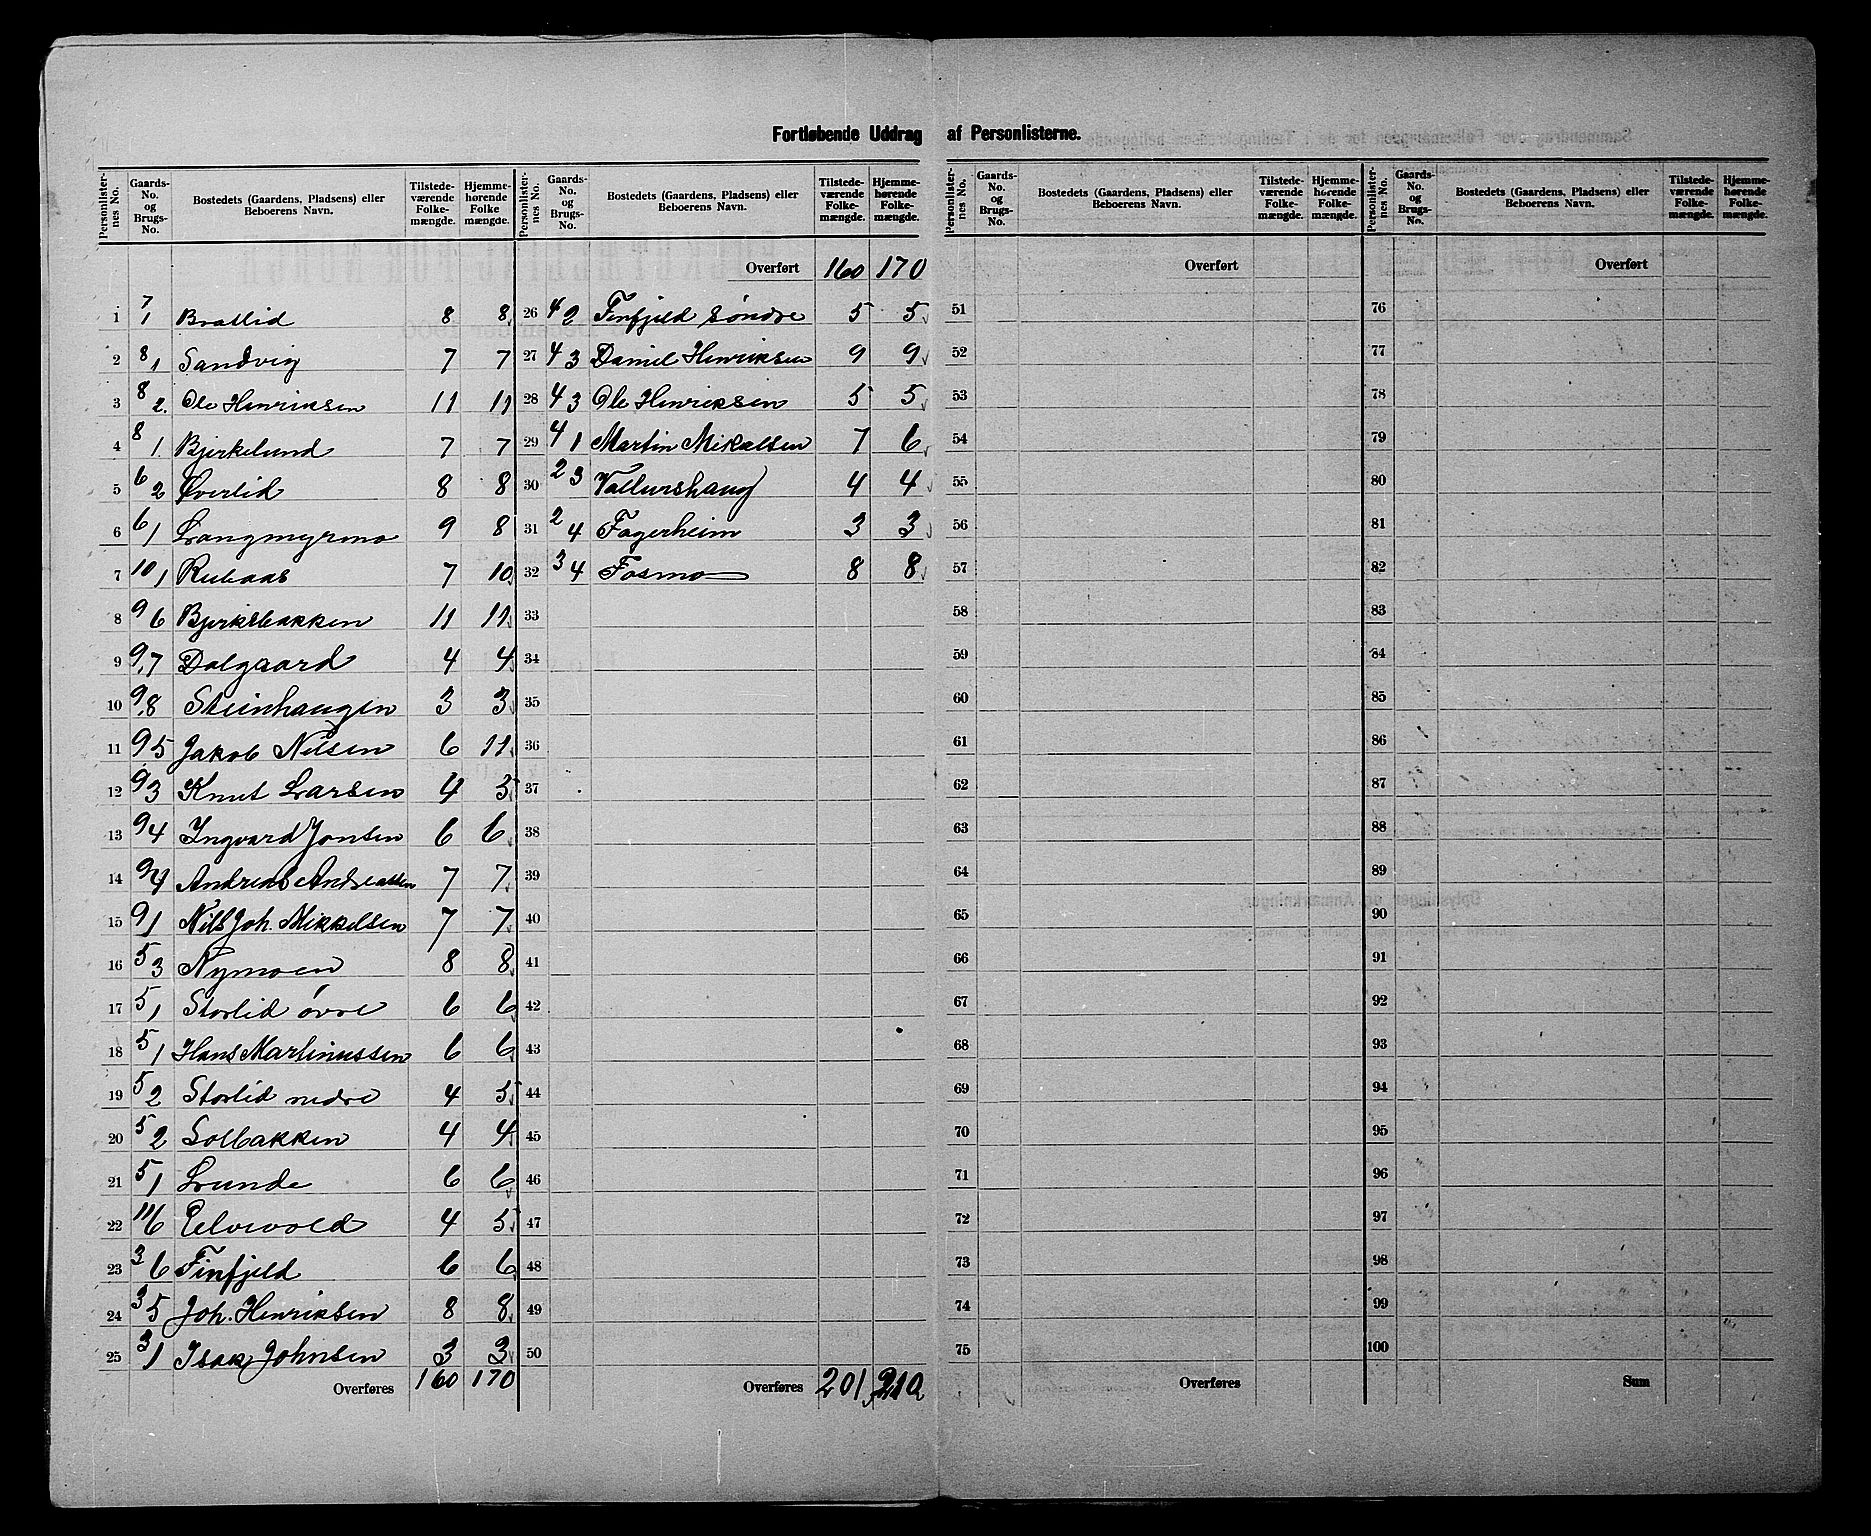 Fortløbende Uddrag af Personlisterne.
Personlisternes No. | Gaards-No. og Brugs-No. | Bostedets (Gaardens, Pladsens) eller Beboerens Navn. | Tilstedeværende Folkemængde. | Hjemmehørende Folkemængde.
1 7/1 Bratlid 8 8
2 8/1 Sandvig 7 7
3 8/2. Ole Henriksen 11 11
4 8/1 Bjerkelund 7 7
5 6/2 Øverlid 8 8
6 6/1 Langmyrmo 9 8
7 10/1 Rubaas 7 10
8 9/6 Bjerkebakken 11 11
9 9/7 Dalgaard 4 4
10 9/8 Steinhaugen 3 3
11 9/5 Jakob Nilsen 6 11
12 9/3 Knut Larsen 4 5
13 9/4 Ingvard Jonsen 6 6
14 9/4 Andreas Andreassen 7 7
15 9/1 Nils Joh. Mikkelsen 7 7
16 5/3 Nymoen 8 8
17 5/1 Storlid övre 6 6
18 5/1 Hans Martinussen 6 6
19 5/2 Storlid nedre 4 5
20 5/2 Solbakken 4 4
21 5/1 Lunde 6 6
22 11/6 Elvevold 4 5
23 3/6 Finfjeld 6 6
24 3/5 Joh. Henriksen 8 8
25 3/1 Isak Johnsen 3 3
Overføres 160 170
Personlisternes No. | Gaards-No. og Brugs-No. | Bostedets (Gaardens, Pladsens) eller Beboerens Navn. | Tilstedeværende Folkemængde. | Hjemmehørende Folkemængde.
Overført 160 170
26 4/2 Finfjeld söndre 5 5
27 4/3 Daniel Henriksen 9 9
28 4/3 Ole Henriksen 5 5
29 4/1 Martin Mikalsen 7 6
30 2/3 4 4
31 2/4 Fagerheim 3 3
32 3/4 Fosmo 8 8
33
34
35
36
37
38
39
40
41
42
43
44
45
46
47
48
49
50
Overføres 201 210
Personlisternes No. | Gaards-No. og Brugs-No. | Bostedets (Gaardens, Pladsens) eller Beboerens Navn. | Tilstedeværende Folkemængde. | Hjemmehørende Folkemængde.
Overført
51
52
53
54
55
56
57
58
59
60
61
62
63
64
65
66
67
68
69
70
71
72
73
74
75
Overføres
Personlisternes No. | Gaards-No. og Brugs-No. | Bostedets (Gaardens, Pladsens) eller Beboerens Navn. | Tilstedeværende Folkemængde. | Hjemmehørende Folkemængde.
Overført
76
77
78
79
80
81
82
83
84
85
86
87
88
89
90
91
92
93
94
95
96
97
98
99
100
Sum